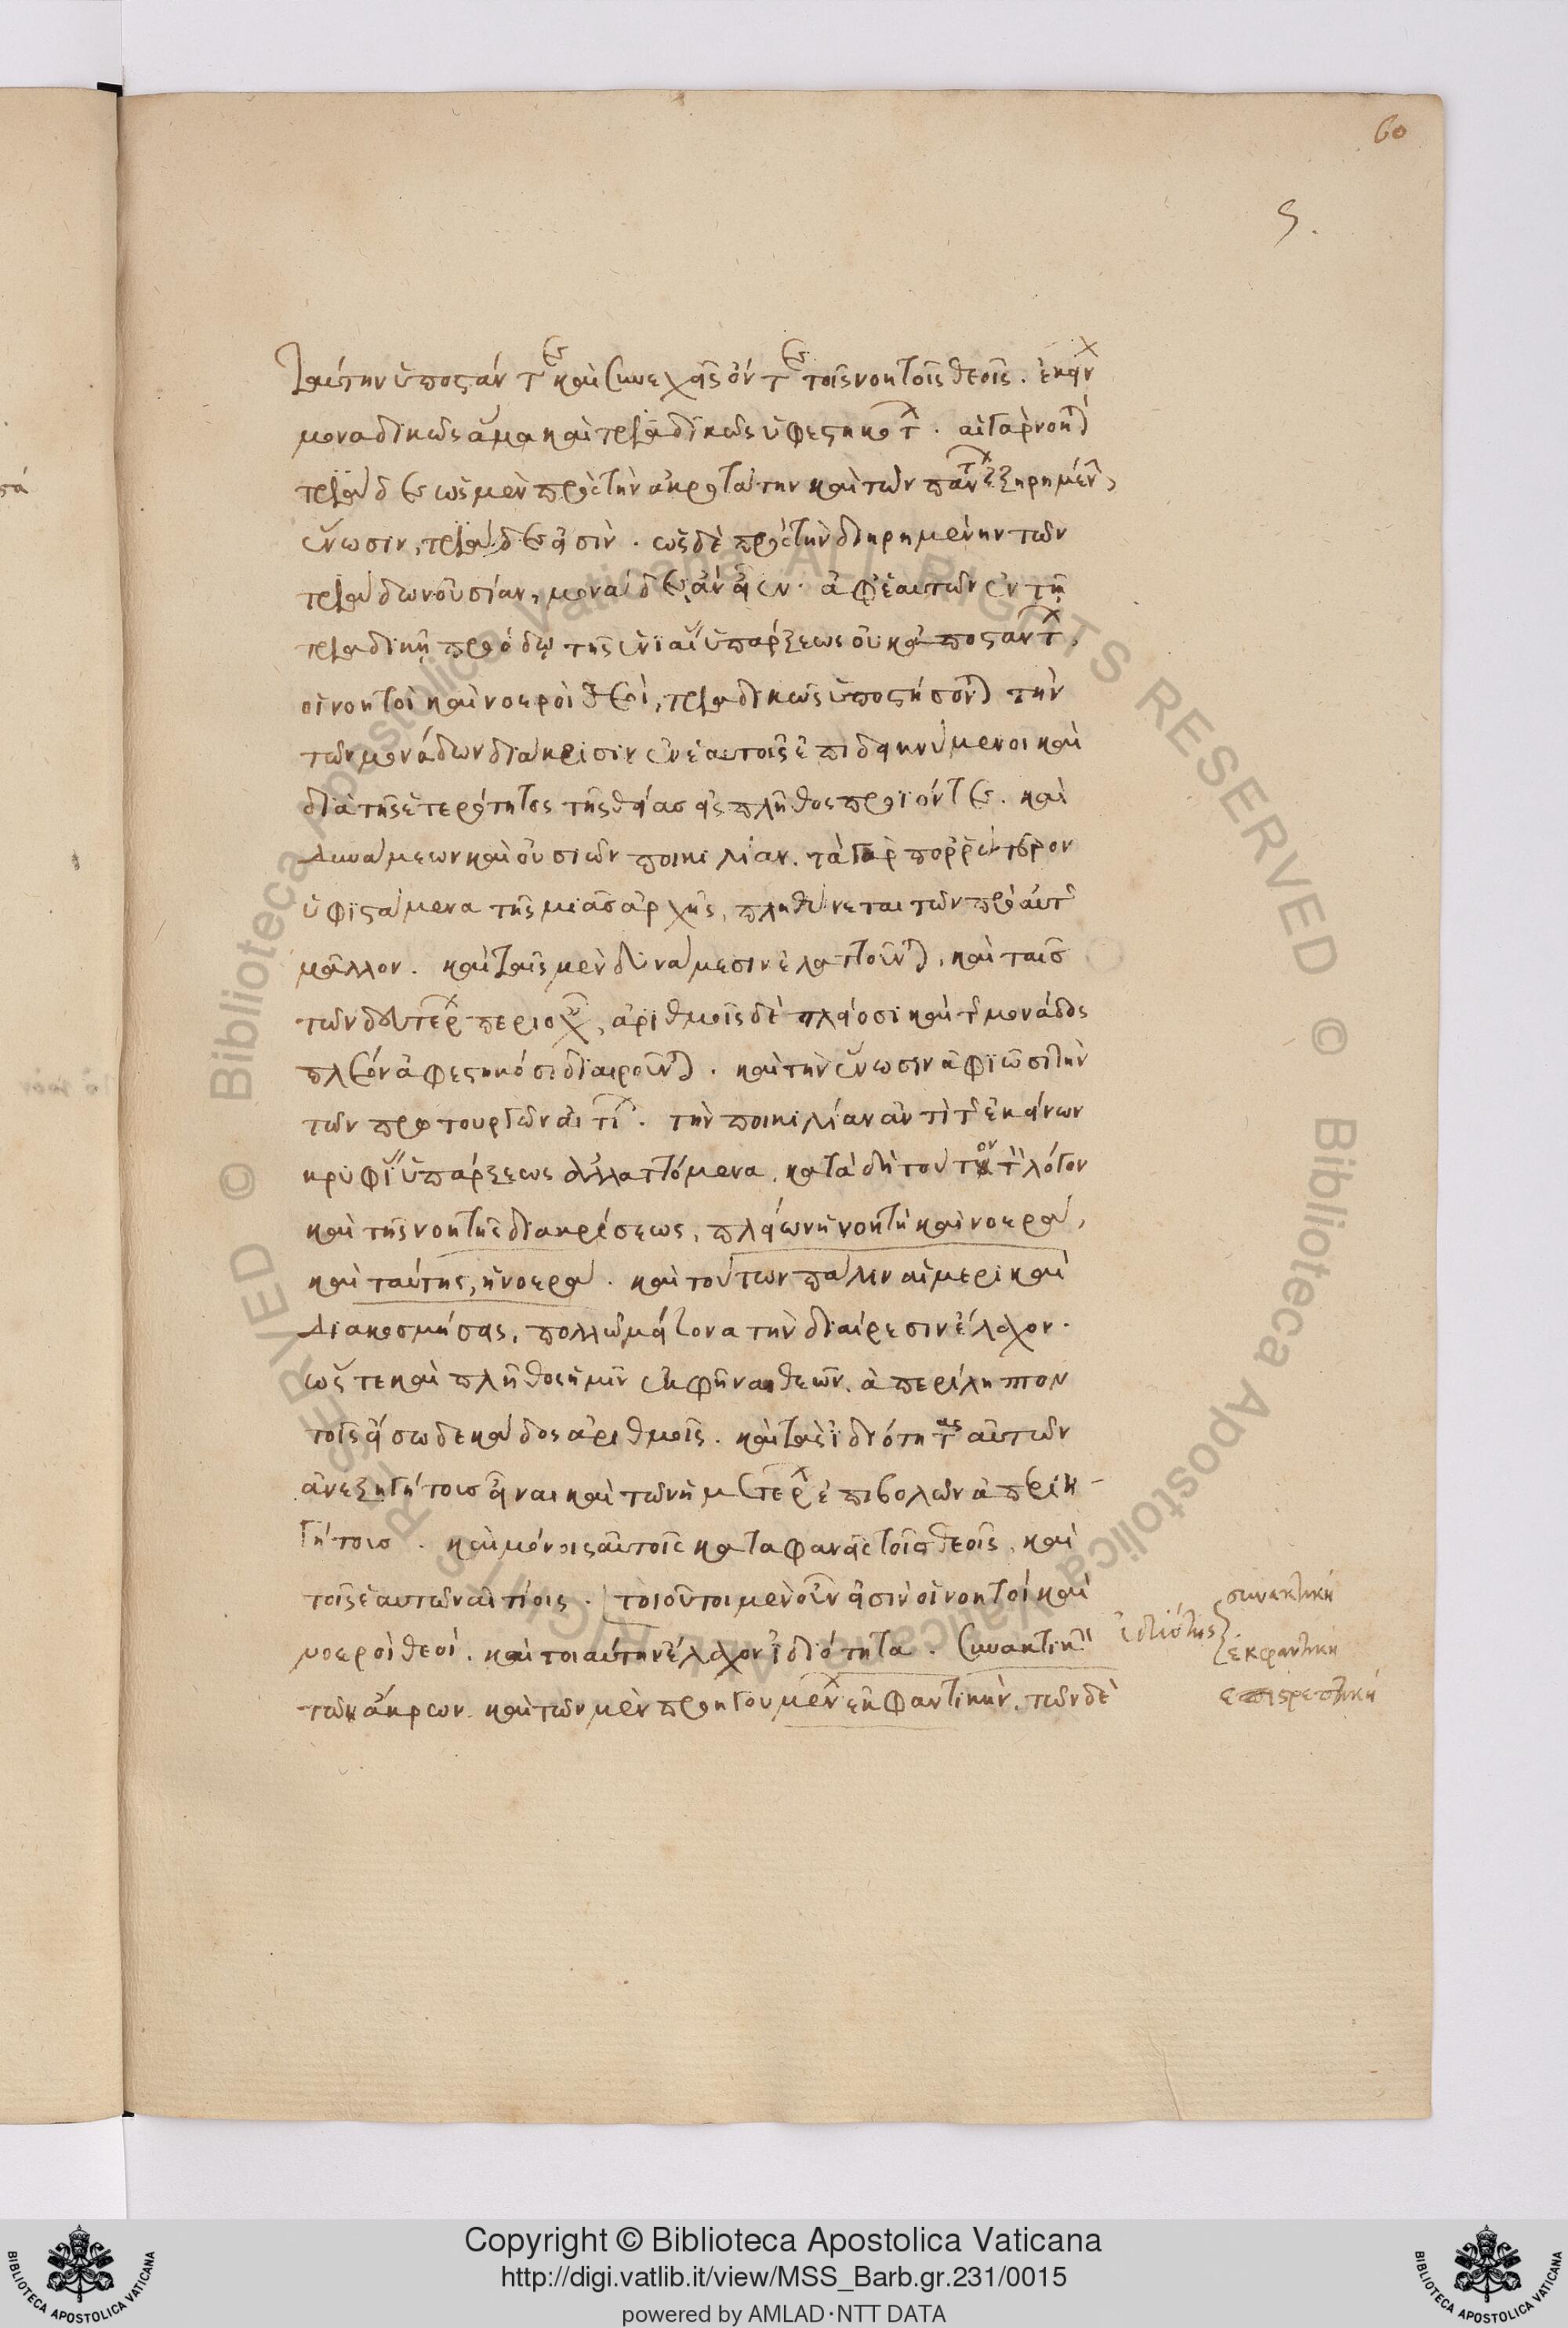 60
5.
ταύτην ὑποστάντες καὶ συνεχεῖς ὄντες τοῖς νοητοῖς θεοῖς. ἐκείνων
μοναδικῶς ἅμα καὶ τριαδικῶς ὑφεστηκότων. αἱ γὰρ νοηταὶ
τριάδες ὡς μὲν πρὸς τὴν ἀκροτάτην καὶ τῶν πάντων ἐξηρημένην,
ἕνωσιν, τριάδες εἰσίν. ὡς δὲ πρὸς τὴν διῃρημένην τῶν
τριάδων οὐσίαν, μονάδες ἂν εἶεν. ἀφ' ἑαυτῶν ἐν τῇ
τριαδικῇ προόδῳ τῆς ἑνιαίας ὑπάρξεως οὐκ ἀποστάντων.
οἱ νοητοὶ καὶ νοεροὶ θεοὶ, τριαδικῶς ὑποστήσονται τὴν
τῶν μονάδων διάκρισιν ἐν ἑαυτοῖς ἐπιδεικνύμενοι καὶ
διὰ τῆς ἑτερότητος τῆς θείας εἰς πλῆθος προϊόντες. καὶ
δυνάμεων καὶ οὐσιῶν ποικιλίαν. τὰ γὰρ πορρώτερον
ὑφιστάμενα τῆς μιᾶς ἀρχῆς, πληθύνεται τῶν πρὸ αὐτῶν
μᾶλλον. καὶ ταῖς μὲν δυνάμεσιν ἐλαττοῦνται, καὶ ταῖς
τῶν δευτέρων περιοχαῖς, ἀριθμοῖς δὲ πλείοσι καὶ τῆς μονάδος
πλέον ἀφεστηκόσι διαιροῦνται. καὶ τὴν ἕνωσιν ἀφιῶσι τὴν
τῶν πρωτουργῶν αἰτίων. τὴν ποικιλίαν ἀντὶ τῆς ἐκείνων
κρυφίας ὑπάρξεως ἀλλαττόμενα. κατὰ δὴ τοῦτον τὸν λόγον
καὶ τῆς νοητῆς διακρίσεως, πλείων ἡ νοητὴ καὶ νοερά,
καὶ ταύτης, ἡ νοερά. καὶ τούτων πάλιν αἱ μερικαὶ
διακοσμήσεις, πολλῷ μείζονα τὴν διαίρεσιν ἔλαχον.
ὥστε καὶ πλῆθος ἡμῖν ἐκφῆναι θεῶν. ἀπερίληπτον
τοῖς εἴσω δεκάδος ἀριθμοῖς. καὶ τὰς ἰδιότητας αὐτῶν
ἀνεξηγήτους εἶναι καὶ τῶν ἡμετέρων ἐπιβολῶν ἀπεριη-
γήτους. καὶ μόνοις αὐτοῖς καταφανεῖς τοῖς θεοῖς, καὶ
τοῖς ἑαυτῶν αἰτίοις. τοιοῦτοι μὲν οὖν εἰσὶν οἱ νοητοί καὶ
νοεροὶ θεοί. καὶ τοιαύτην ἔλαχον ἰδιότητα. συνακτικὴν
τῶν ἄκρων. καὶ τῶν μὲν προηγουμένων ἐκφαντικὴν. τῶν δὲ
ἰδιότης συνακτική
ἐκφαντική
ἐπιστρεπτική
Copyright © Biblioteca Apostolica Vaticana
http://digi.vatlib.it/view/MSS_Barb.gr.231/0015
powered by AMLAD·NTT DATA